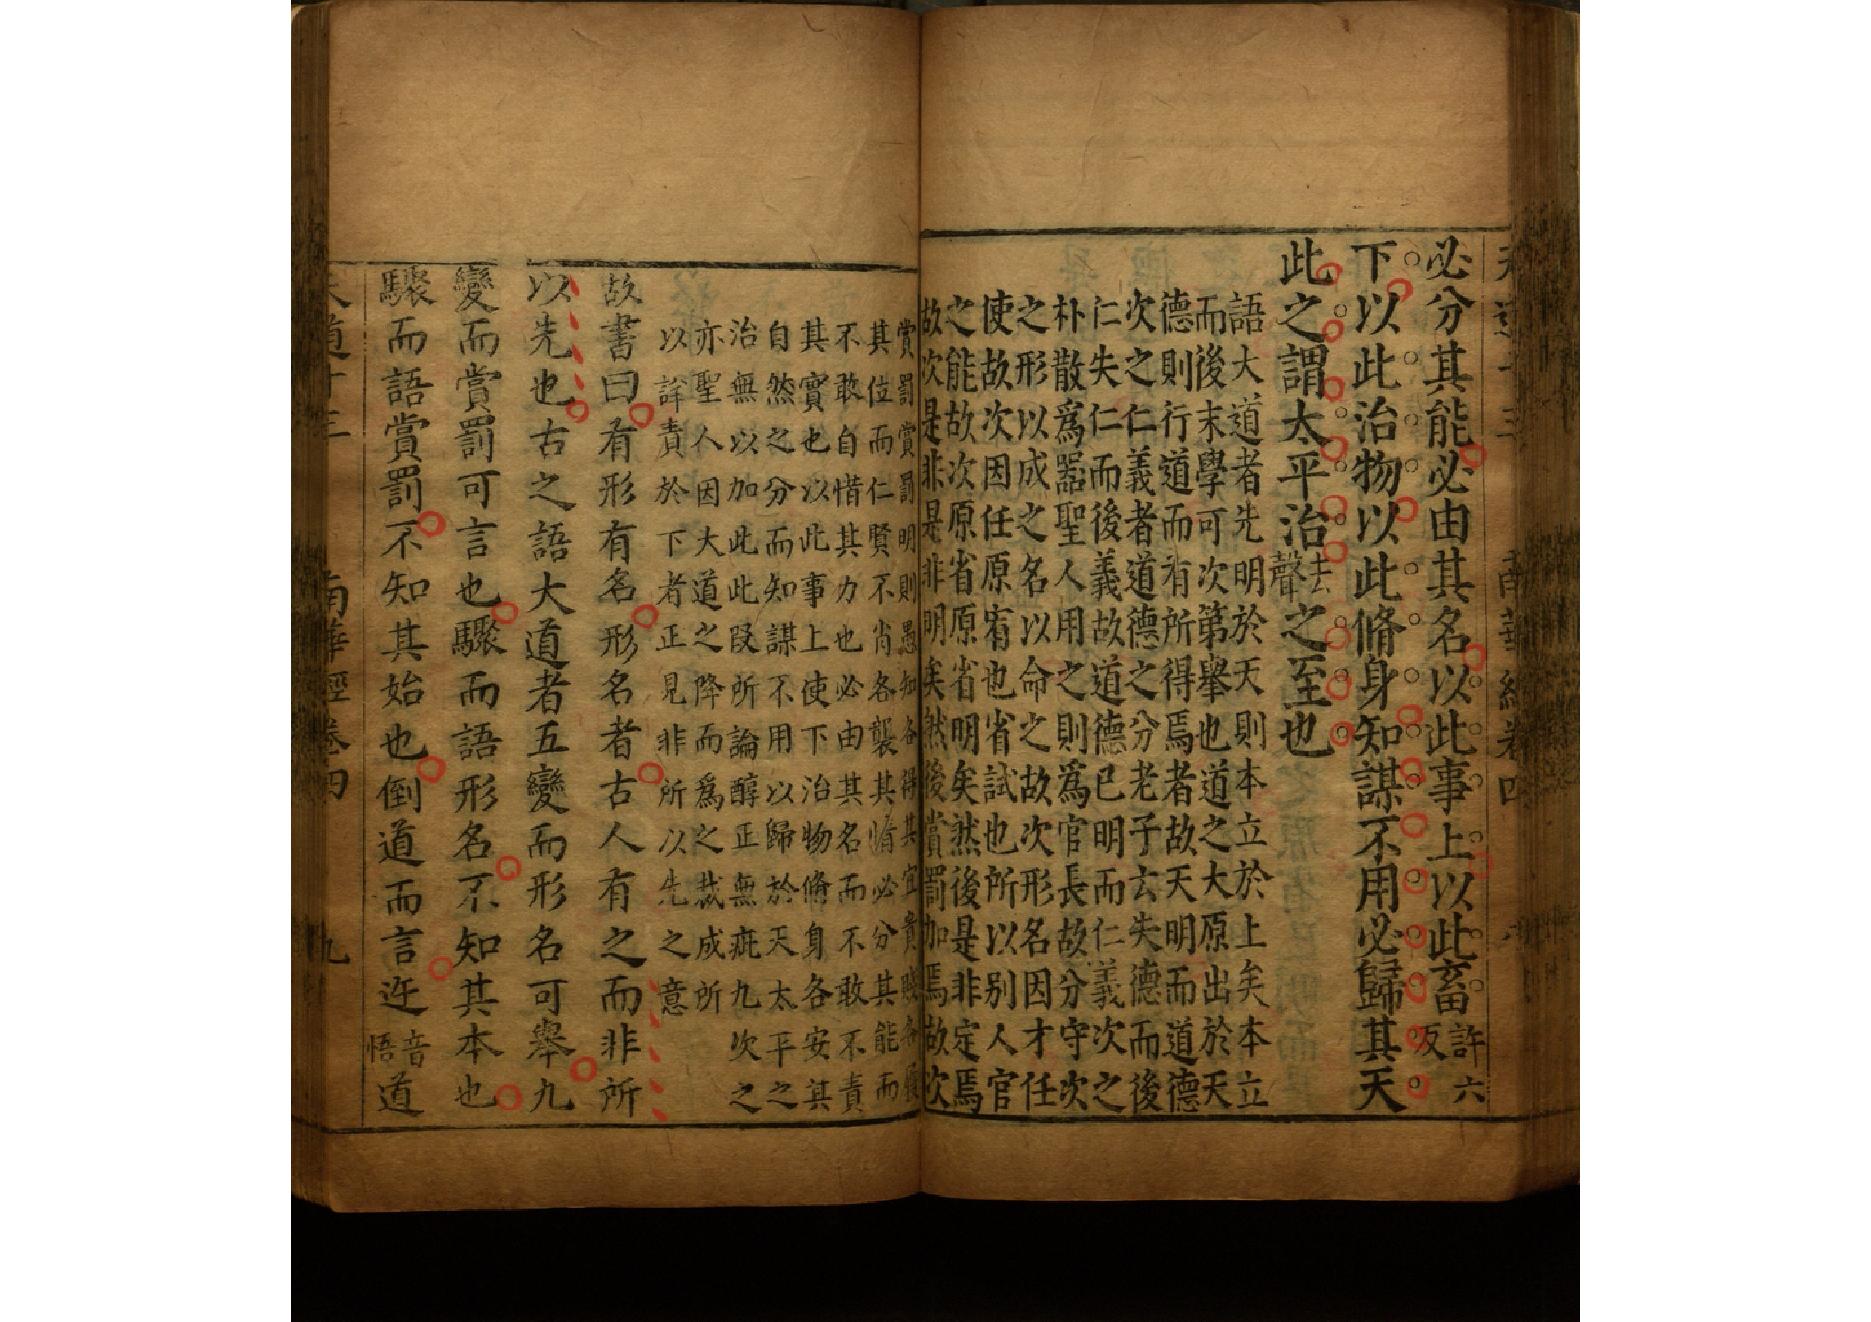 天道十三 南華經卷四
必分其能必由其名以此事上以此畜許六反
下以此治物以此脩身知謀不用必歸其天
此之謂太平治去聲之至也
語大道者先明於天則本立於上矣本立
而後末學可次第舉也道之大原出於天
德則行道而有所得焉者故天明而道德
次之仁義者道德之分老子云失德而後
仁失仁而後義故道德已明而仁義次之
朴散爲噐聖人用之則爲官長故分守次
之形以成之名以命之故次形名因才任
使故次因任原宥也省試也所以别人官
之能故次原省原省明矣然後是非定焉
故次是非是非明矣然後賞罰加焉故次
賞罰賞罰明則愚知各得其宜貴賤各履
其位而仁賢不肖各襲其情必分其能而
不敢自惜其力也必由其名而不敢不責
其實也以此事上使下治物脩身各安其
自然之分而知謀不用以歸於天太平之
治無以加此此叚所論醇正無疵九次之
亦聖人因大道之降而爲之裁成所
以諄責於下者正見非所以先之意
故書曰有形有名形名者古人有之而非所
以先也古之語大道者五變而形名可舉九
變而賞罰可言也驟而語形名不知其本也
驟而語賞罰不知其始也倒道而言迕音悟道
天道十三 南華經卷四 九